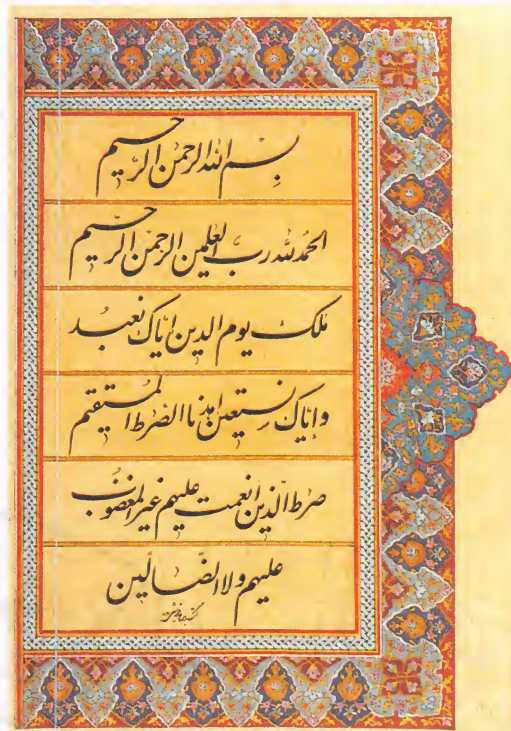 بسم الله الرحمن الرحيم
الحمد لله رب العلمين الرحمن الرحيم
ملك يوم الدين اياك نعبد
واياك نستعين اهدنا الصرط المستقيم
صرط الذين انعمت عليهم غير المغضوب
عليهم ولا الضالين